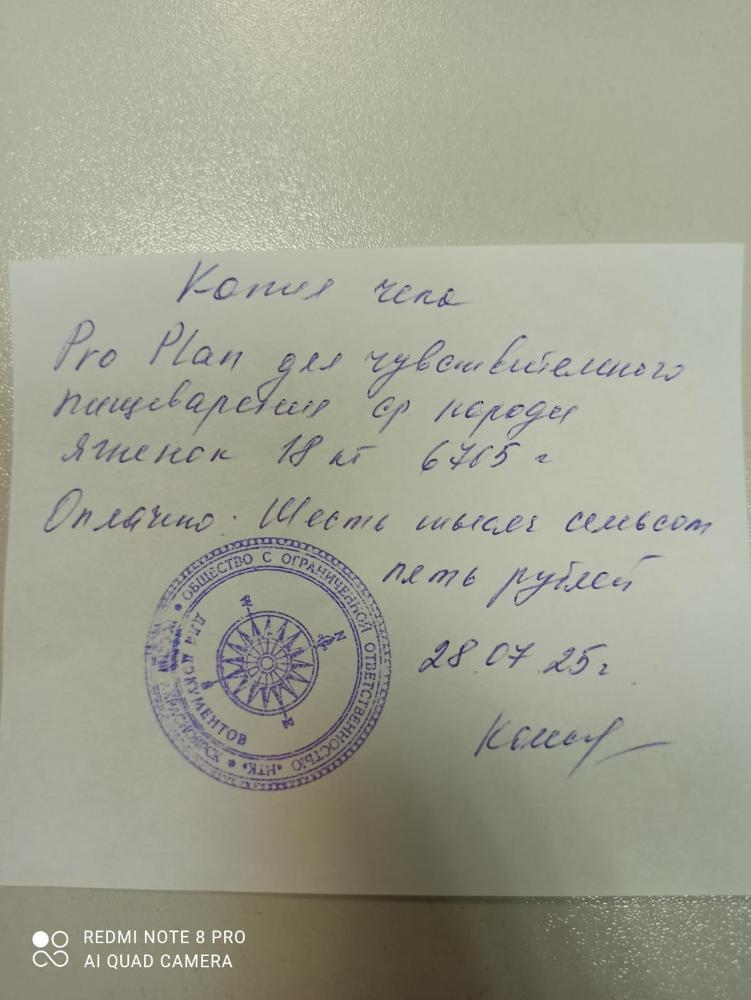 Копия чека
Pro Plan для чувствительного
пищеварения ср породы
ягненок 18 кг 6705 г
Оплачено. Шесть тысяч семьсот
пять рублей
28.07.25г
ОБЩЕСТВО С ОГРАНИЧЕННОЙ ОТВЕТСТВЕННОСТЬЮ
«НТК»
КРАСНОЯРСК
ДЛЯ
ДОКУМЕНТОВ
N
E
REDMI NOTE 8 PRO
AI QUAD CAMERA